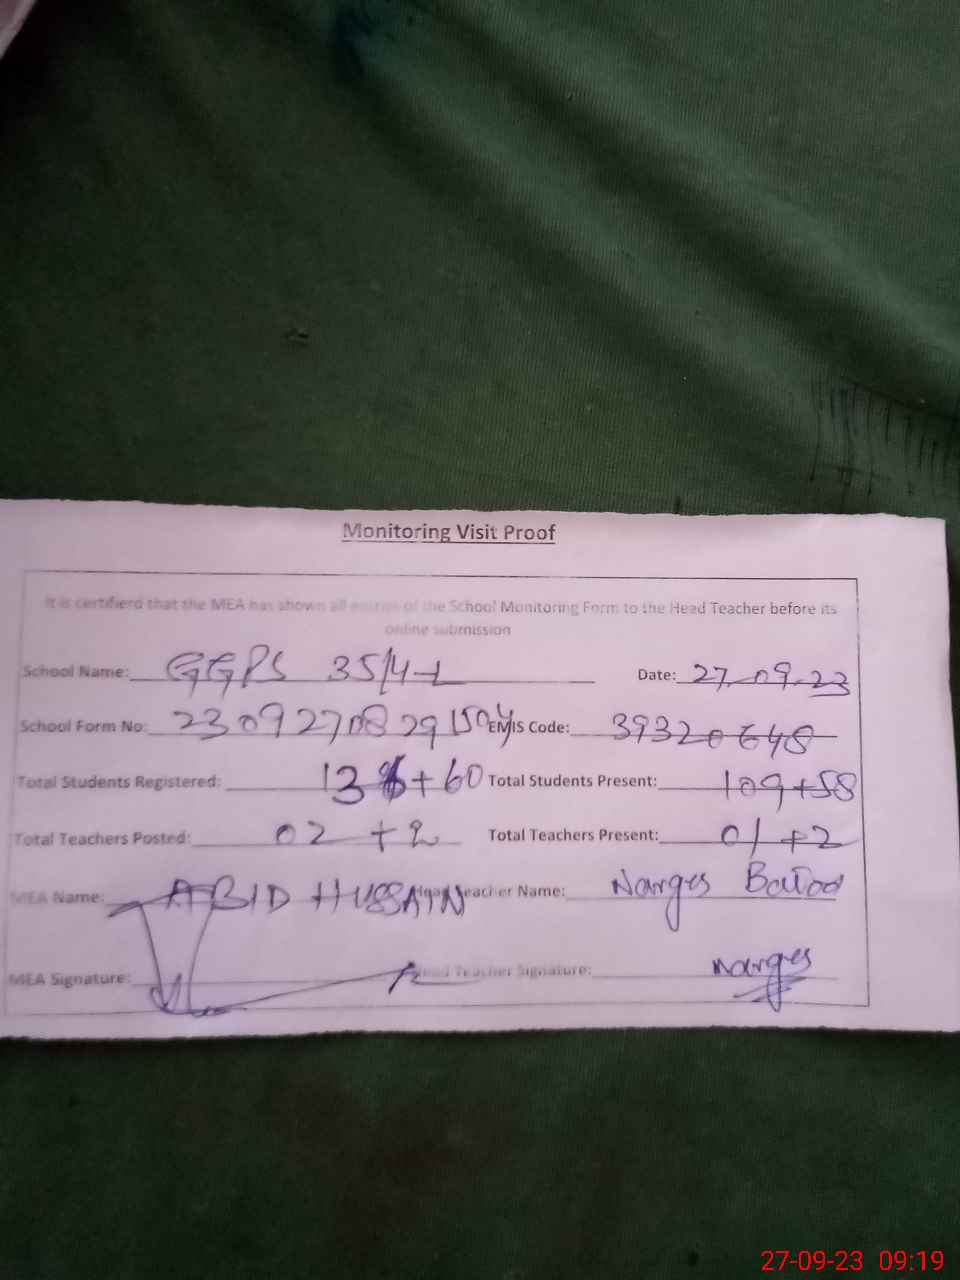 Monitoring Visit Proof
It is certifierd that the MEA has shown all entries of the School Monitoring Form to the Head Teacher before its
online submission
School Name: GGPS 35/4-L Date: 27-09-23
School Form No: 23092708291504 EMIS Code: 39320648
Total Students Registered: 13 + 60 Total Students Present: 109+58
Total Teachers Posted: 02 + 2 Total Teachers Present: 01 +2
MEA Name: ABID HUSSAIN Head Teacher Name: Narges
MEA Signature: Head Teacher Signature: narges
27-09-23 09:19